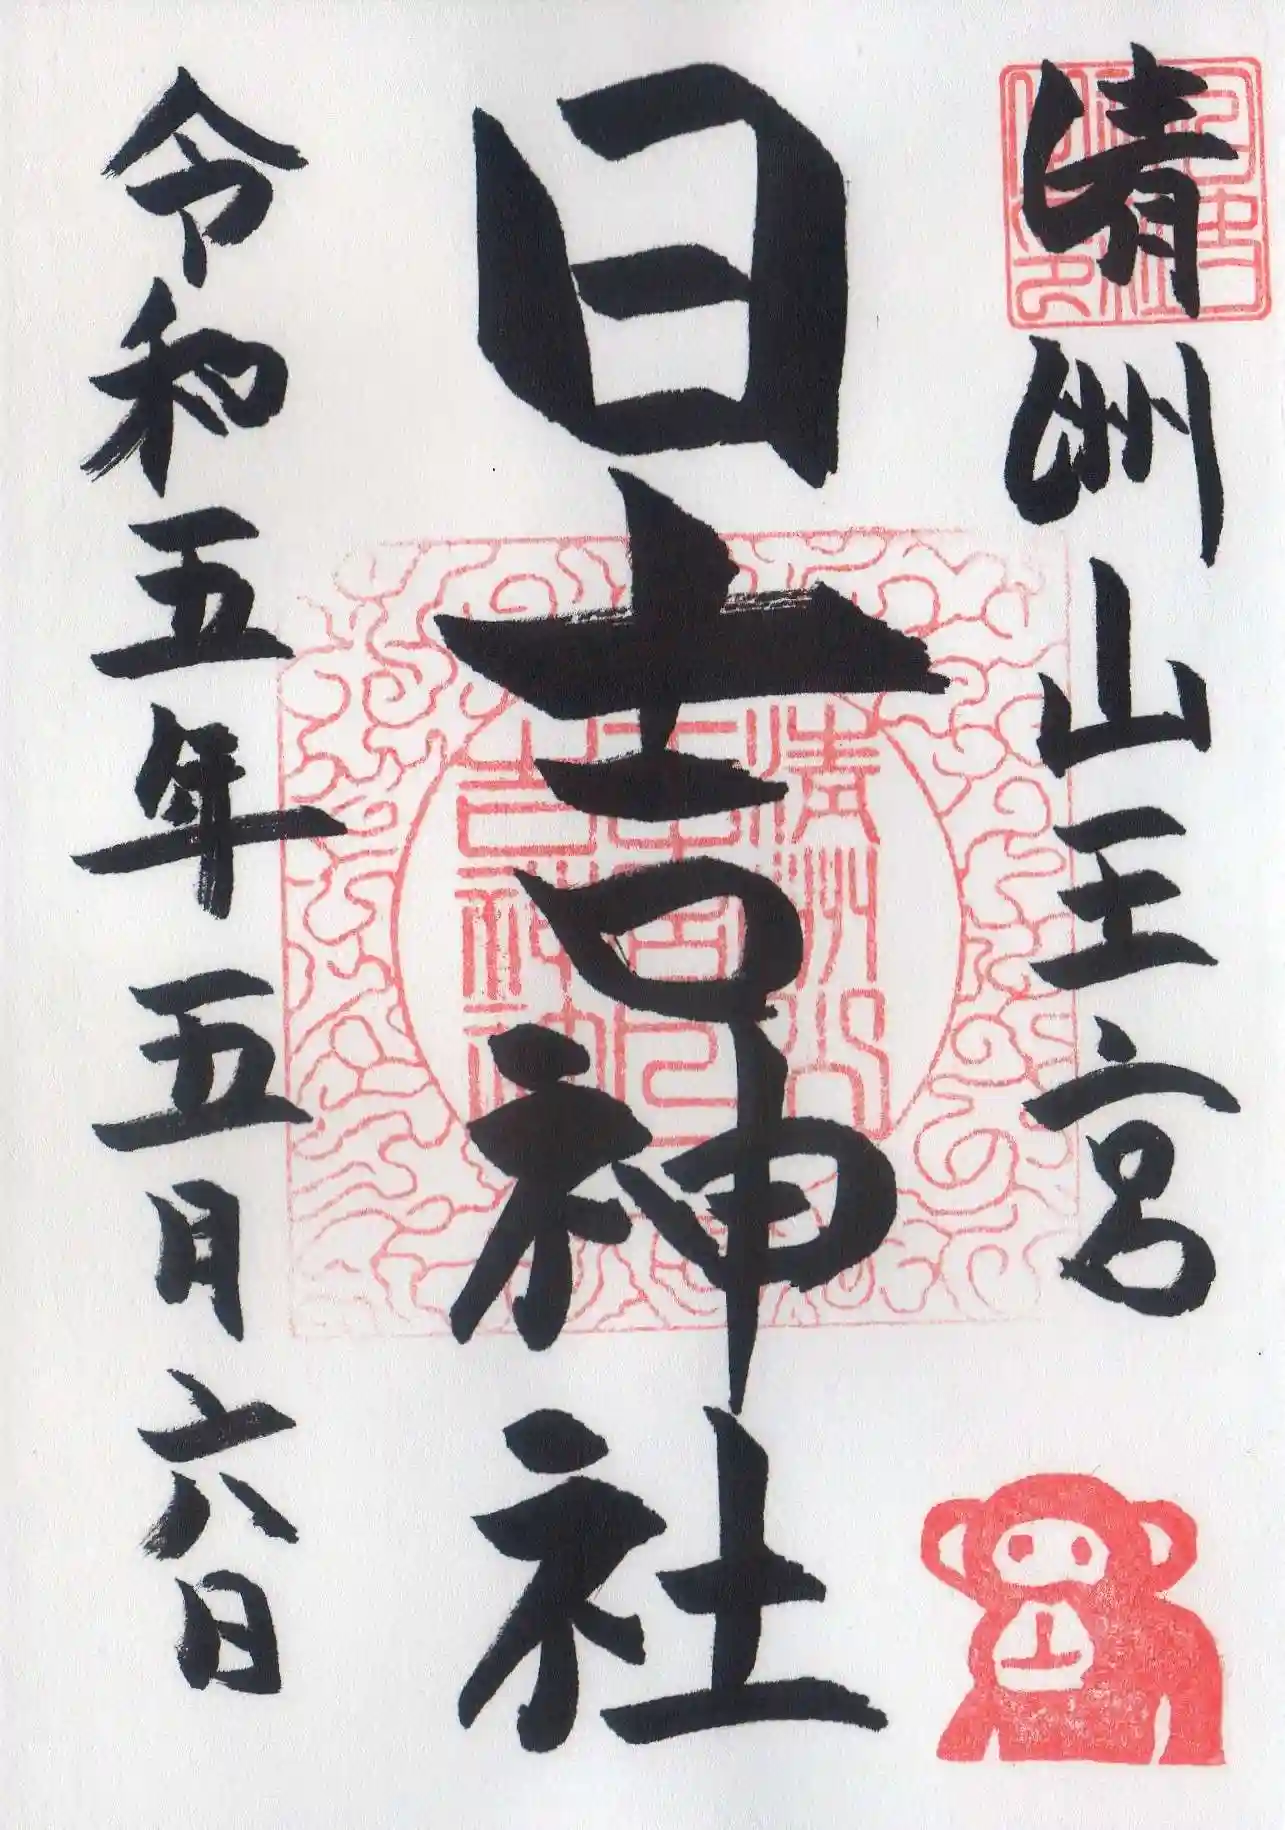 清洲山王宮
日吉神社
令和五年五月六日
清洲山
王宮日
吉神社